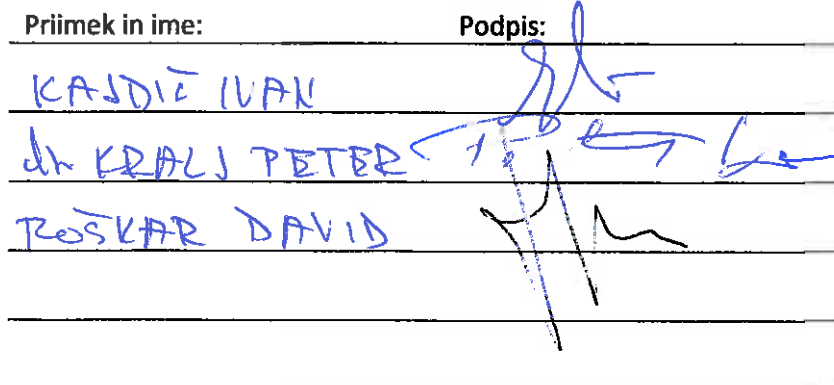 Priimek in ime: Podpis:
KAJDIČ IVAN
dr KRALJ PETER
ROŠKAR DAVID